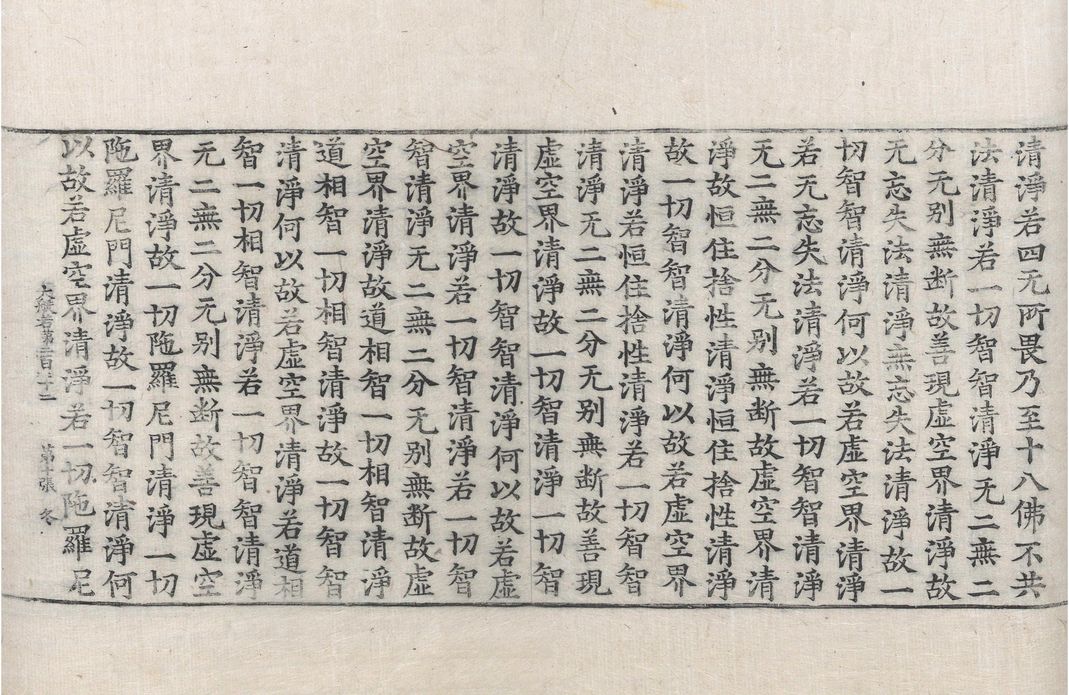 清淨若四无所畏乃至十八佛不共
法清淨若一切智智清淨无二無二
分无別無断故善現虛空界清淨故
无忘失法清淨無忘失法清淨故一
切智智清淨何以故若虛空界清淨
若无忘失法清淨若一切智智清淨
无二無二分无別無断故虛空界清
淨故恒住捨性清淨恒住捨性清淨
故一切智智清淨何以故若虛空界
清淨若恒住捨性清淨若一切智智
清淨无二無二分无別無断故善現
虛空界清淨故一切智清淨一切智
清淨故一切智智清淨何以故若虛
空界清淨若一切智清淨若一切智
智清淨无二無二分无別無断故虛
空界清淨故道相智一切相智清淨
道相智一切相智清淨故一切智智
清淨何以故若虛空界清淨若道相
智一切相智清淨若一切智智清淨
无二無二分无別無断故善現虛空
界清淨故一切陁羅尼門清淨一切
陁羅尼門清淨故一切智智清淨何
以故若虛空界清淨若一切陁羅尼
大般若第 第十張 冬